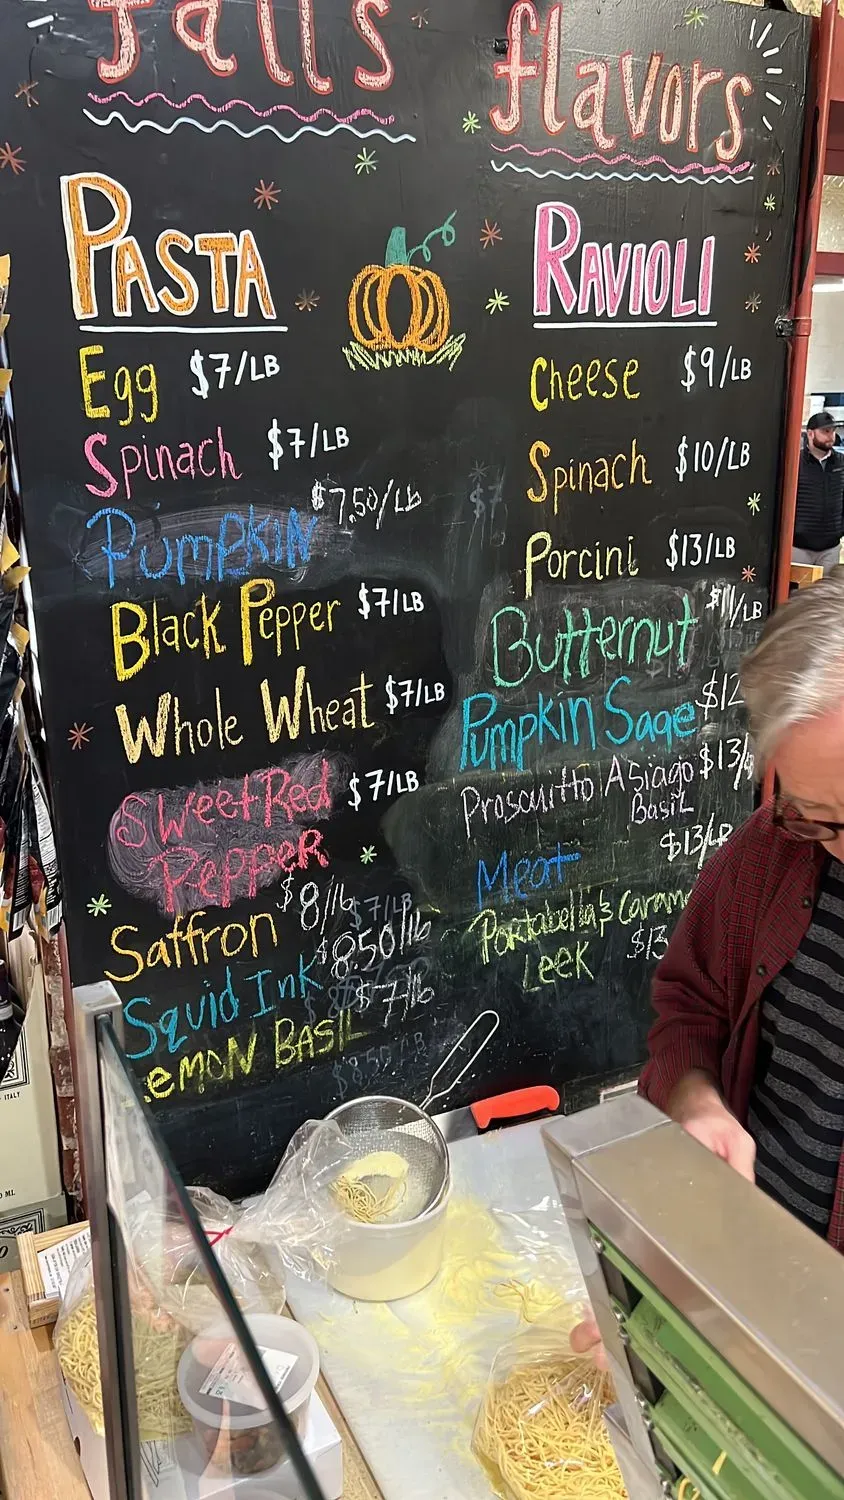 Falls flavors
PASTA
Egg $7/LB
Spinach $7/LB
Pumpkin $7.50/lb
Black Pepper $7/LB
Whole Wheat $7/LB
Sweet Red $7/LB
Pepper
Saffron $8/lb
$7/LB
Squid Ink $8.50/lb
Lemon Basil $7/lb
$8.50/LB
RAVIOLI
Cheese $9/LB
Spinach $10/LB
$7
Porcini $13/LB
Butternut $11/LB
Pumpkin Sage $12
Proscuitto Asiago $13/
Basil
Meat $13/LB
Portabella & Carame
Leek $13
ITALY
ML